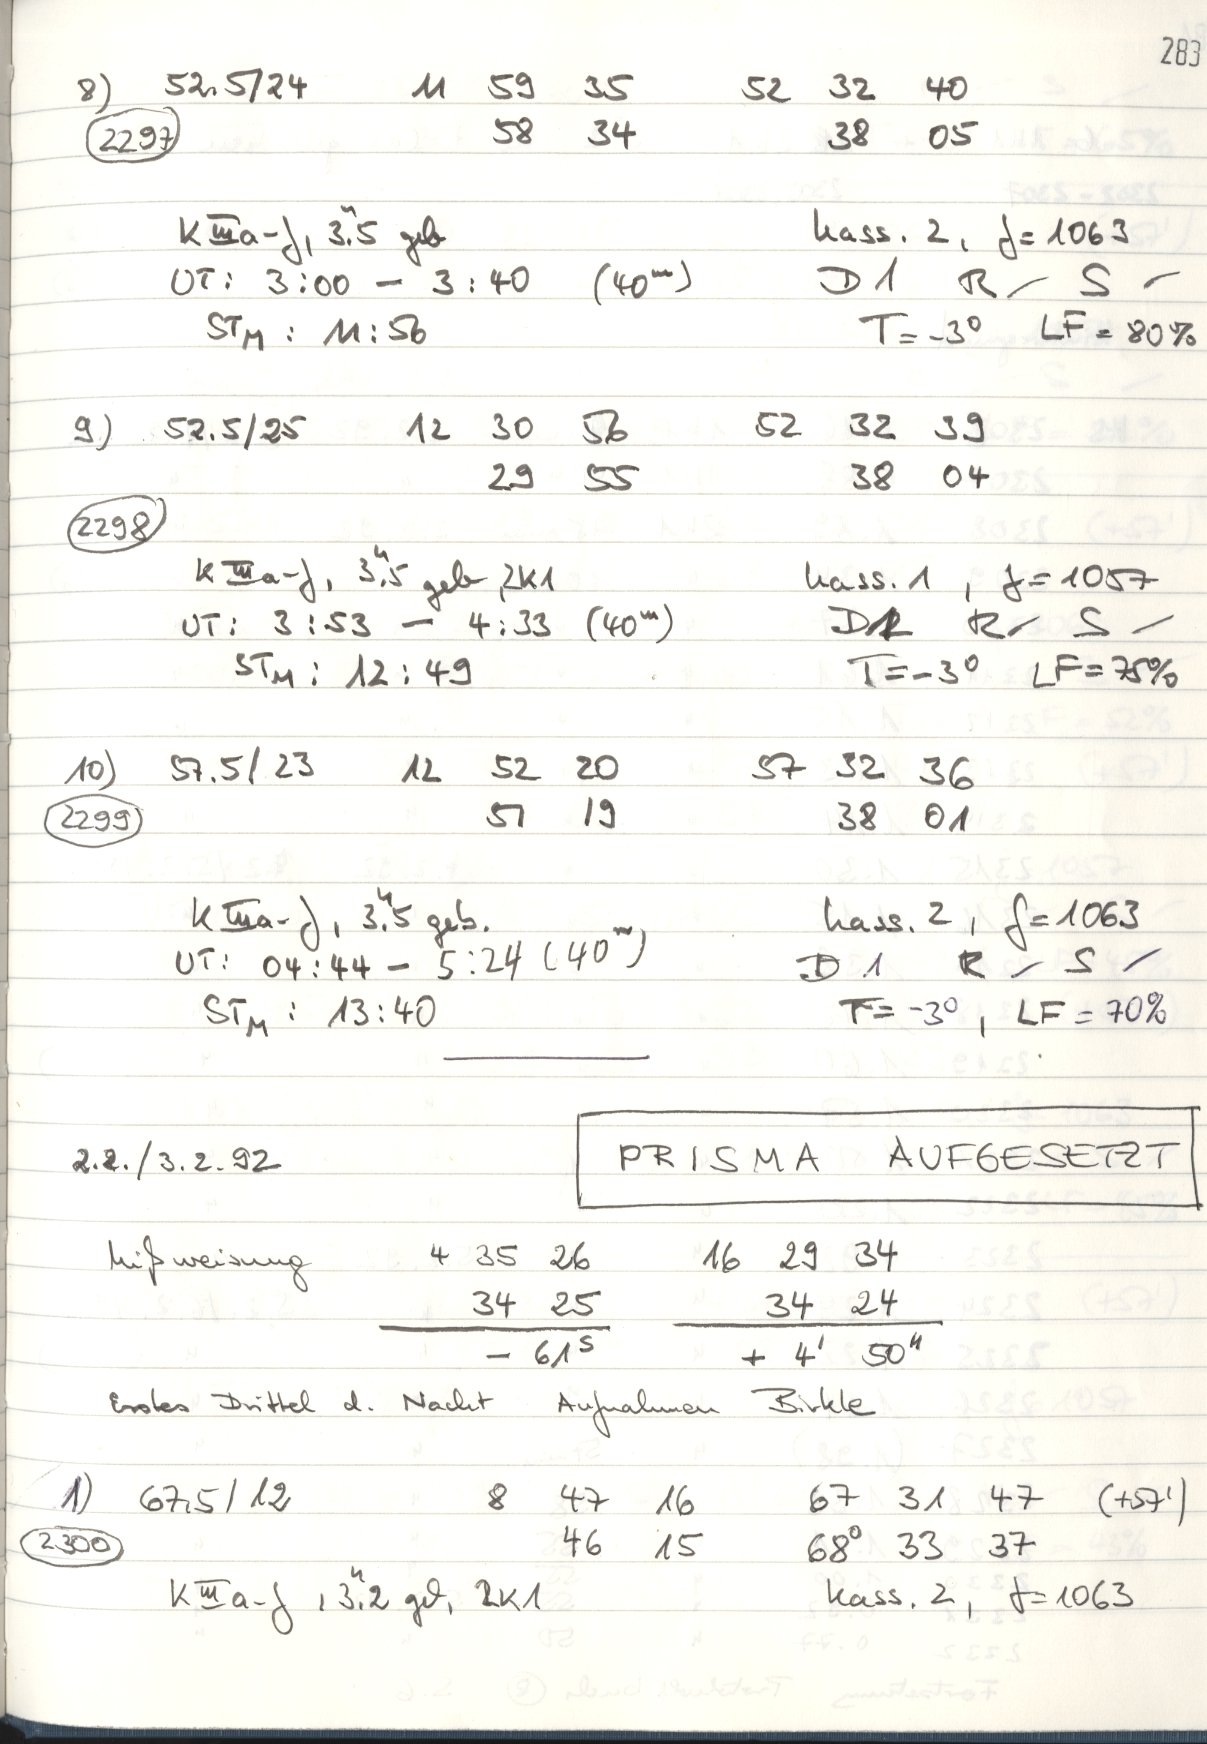 283
8) 52.5/24 11 59 35 52 32 40
2297 58 34 38 05
K III a-J, 3."5 geb Kass. 2, f=1063
UT: 3:00 – 3:40 (40m) D1 R ✓ S ✓
STM : 11:56 T=-3° LF=80%
9) 52.5/25 12 30 56 52 32 39
29 55 38 04
2298
K III a-J, 3."5 geb, 2K1 Kass. 1, f=1057
UT: 3:53 – 4:33 (40m) D1 R ✓ S ✓
STM : 12:49 T=-3° LF=75%
10) 57.5/23 12 52 20 57 32 36
2299 51 19 38 01
K III a-J, 3."5 geb. Kass. 2, f=1063
UT: 04:44 – 5:24 (40m) D1 R ✓ S ✓
STM : 13:40 T=-3°, LF=70%
2.2./3.2.92 PRISMA AUFGESETZT
Mißweisung 4 35 26 16 29 34
34 25 34 24
- 61s + 4' 50"
Erstes Drittel d. Nacht Aufnahmen Birkle
1) 67.5/12 8 47 16 67 31 47 (+57')
2300 46 15 68° 33 37
K III a-J, 3."2 geb, 2K1 Kass. 2, f=1063